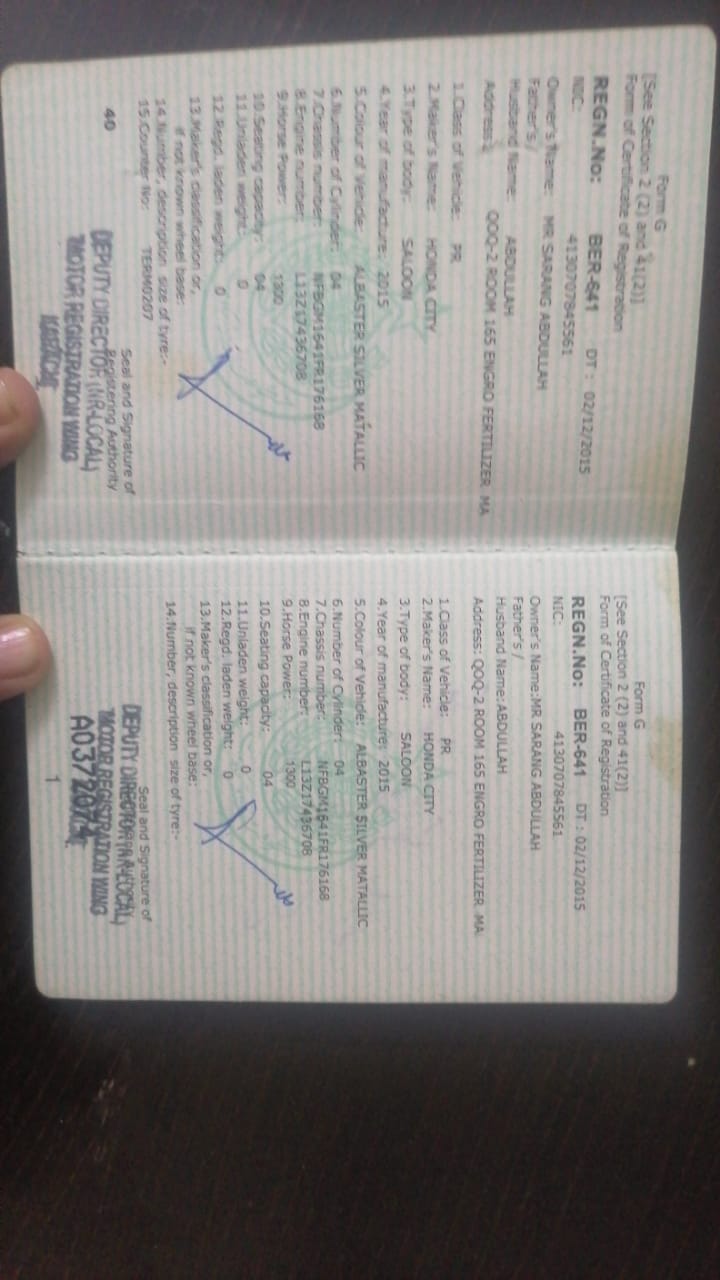 Form G
[See Section 2 (2) and 41(2)]
Form of Certificate of Registration
REGN.No: BER-641 DT : 02/12/2015
NIC: 4130707845561
Owner's Name: MR SARANG ABDULLAH
Father's/
Husband Name: ABDULLAH
Address: QOQ-2 ROOM 165 ENGRO FERTILIZER MA
1.Class of Vehicle: PR
2.Maker's Name: HONDA CITY
3.Type of body: SALOON
4.Year of manufacture: 2015
5.Colour of Vehicle: ALBASTER SILVER MATALLIC
6.Number of Cylinder: 04
7.Chassis number: NFBGM1641FR176168
8.Engine number: L13Z17436708
9.Horse Power: 1300
10.Seating capacity: 04
11.Unladen weight: 0
12.Regd. laden weight: 0
13.Maker's classification or,
if not known wheel base:
14.Number, description size of tyre:-
15.Counter No: TERM0207
Seal and Signature of
Registering Authority
40
DEPUTY DIRECTOR (NR-LOCAL)
MOTOR REGISTRATION WING
KARACHI
Form G
[See Section 2 (2) and 41(2)]
Form of Certificate of Registration
REGN.No: BER-641 DT : 02/12/2015
NIC: 4130707845561
Owner's Name:MR SARANG ABDULLAH
Father's/
Husband Name:ABDULLAH
Address: QOQ-2 ROOM 165 ENGRO FERTILIZER MA
1.Class of Vehicle: PR
2.Maker's Name: HONDA CITY
3.Type of body: SALOON
4.Year of manufacture: 2015
5.Colour of Vehicle: ALBASTER SILVER MATALLIC
6.Number of Cylinder: 04
7.Chassis number: NFBGM1641FR176168
8.Engine number: L13Z17436708
9.Horse Power: 1300
10.Seating capacity: 04
11.Unladen weight: 0
12.Regd. laden weight: 0
13.Maker's classification or,
if not known wheel base:
14.Number, description size of tyre:-
Seal and Signature of
DEPUTY DIRECTOR (NR-LOCAL)
MOTOR REGISTRATION WING
1